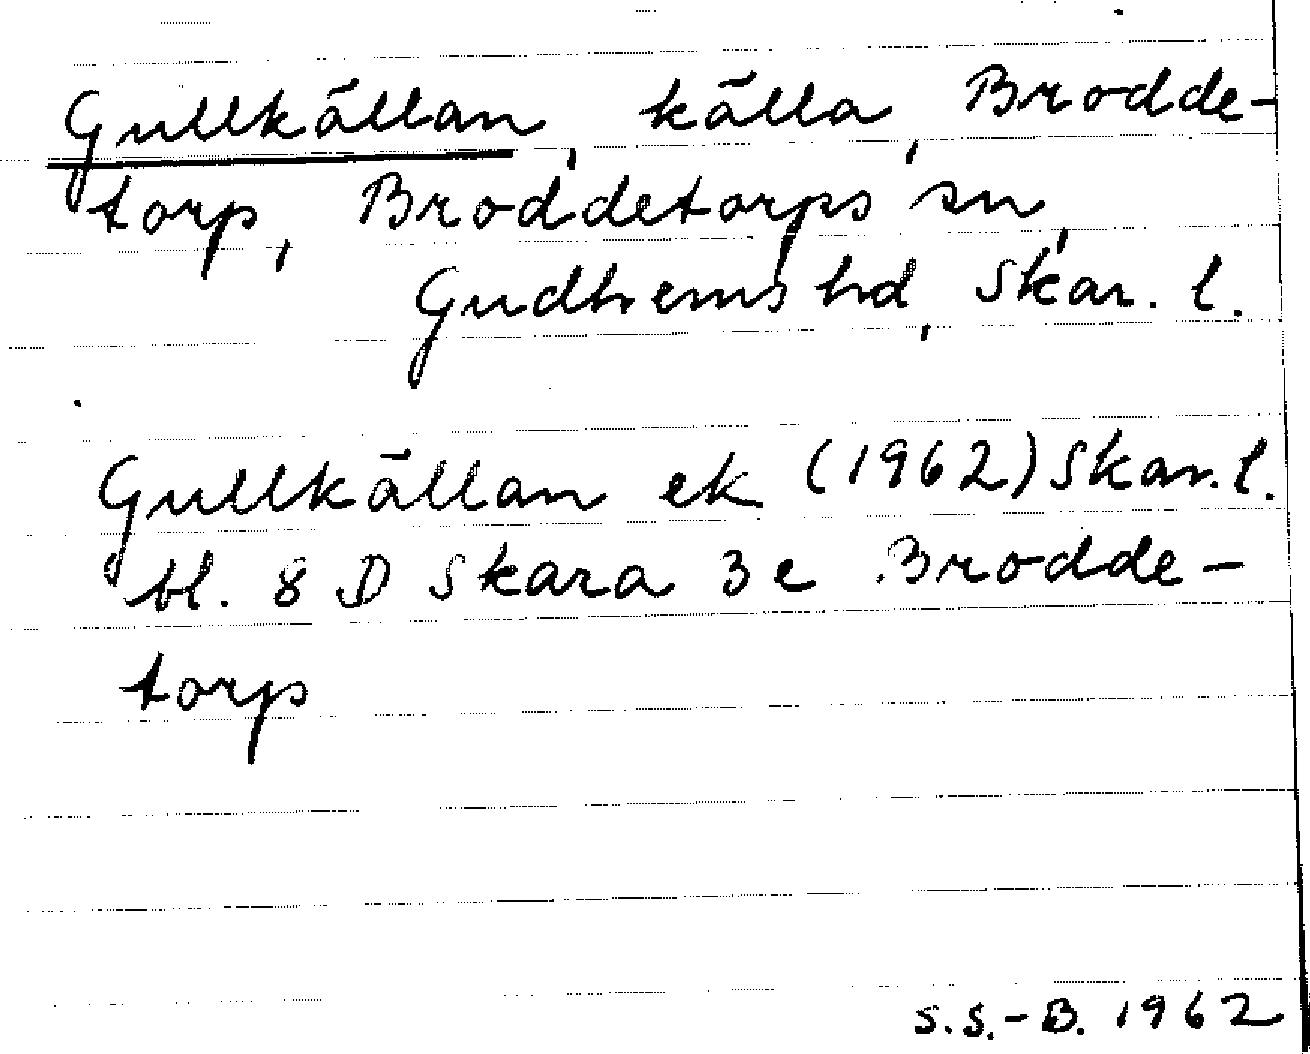 Gullkällan, källa, Brodde-
torp, Broddetorps sn,
Gudhems hd, Skar. l.
Gullkällan ek (1962) Skar. l.
bl. 8 D Skara 3 e Brodde-
torp
S.S.-B. 1962